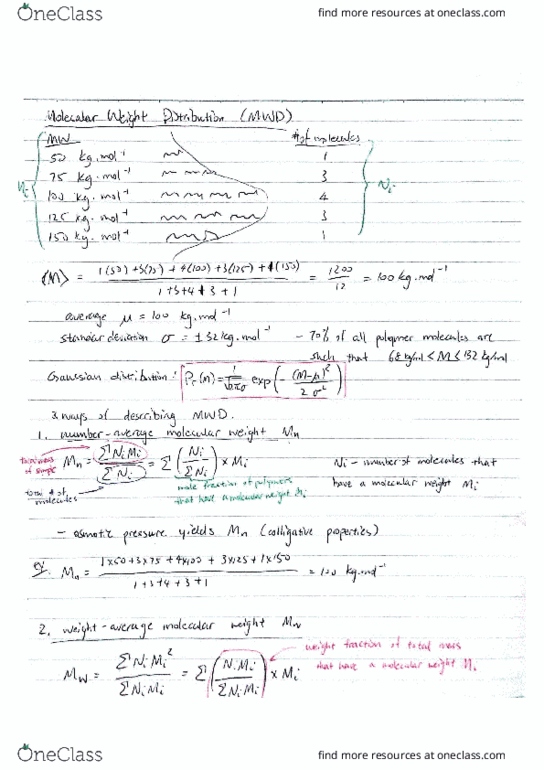 OneClass find more resources at oneclass.com
Molecular Weight Distribution (MWD)
MW # of molecules
50 kg.mol⁻¹ 1
75 kg.mol⁻¹ 3
100 kg.mol⁻¹ 4
125 kg.mol⁻¹ 3
150 kg.mol⁻¹ 1
Nᵢ
⟨M⟩ = 1(50) + 3(75) + 4(100) + 3(125) + 1(150) / 1+3+4+3+1 = 1200 / 12 = 100 kg.mol⁻¹
average μ = 100 kg.mol⁻¹
standard deviation σ = ±32 kg.mol⁻¹ - 70% of all polymer molecules are
such that 68 kg/mol < M ≤ 132 kg/mol
Gaussian distribution: Pr(M) = 1/√2πσ exp(- (M-μ)² / 2σ²)
3 ways of describing MWD.
1. number-average molecular weight Mn
total mass of sample Mn = ΣNᵢMᵢ / ΣNᵢ = Σ(Nᵢ / ΣNᵢ) × Mᵢ Nᵢ - number of molecules that
have a molecular weight Mᵢ
total # of molecules
mole fraction of polymers
that have a molecular weight Mᵢ
- osmotic pressure yields Mn (colligative properties)
ex. Mn = 1×50+3×75 + 4×100 + 3×125 + 1×150 / 1+3+4+3+1 = 100 kg.mol⁻¹
2. weight-average molecular weight
weight fraction of total mass
that have a molecular weight Mᵢ
Mw = ΣNᵢMᵢ² / ΣNᵢMᵢ = Σ(NᵢMᵢ / ΣNᵢMᵢ) × Mᵢ
OneClass find more resources at oneclass.com